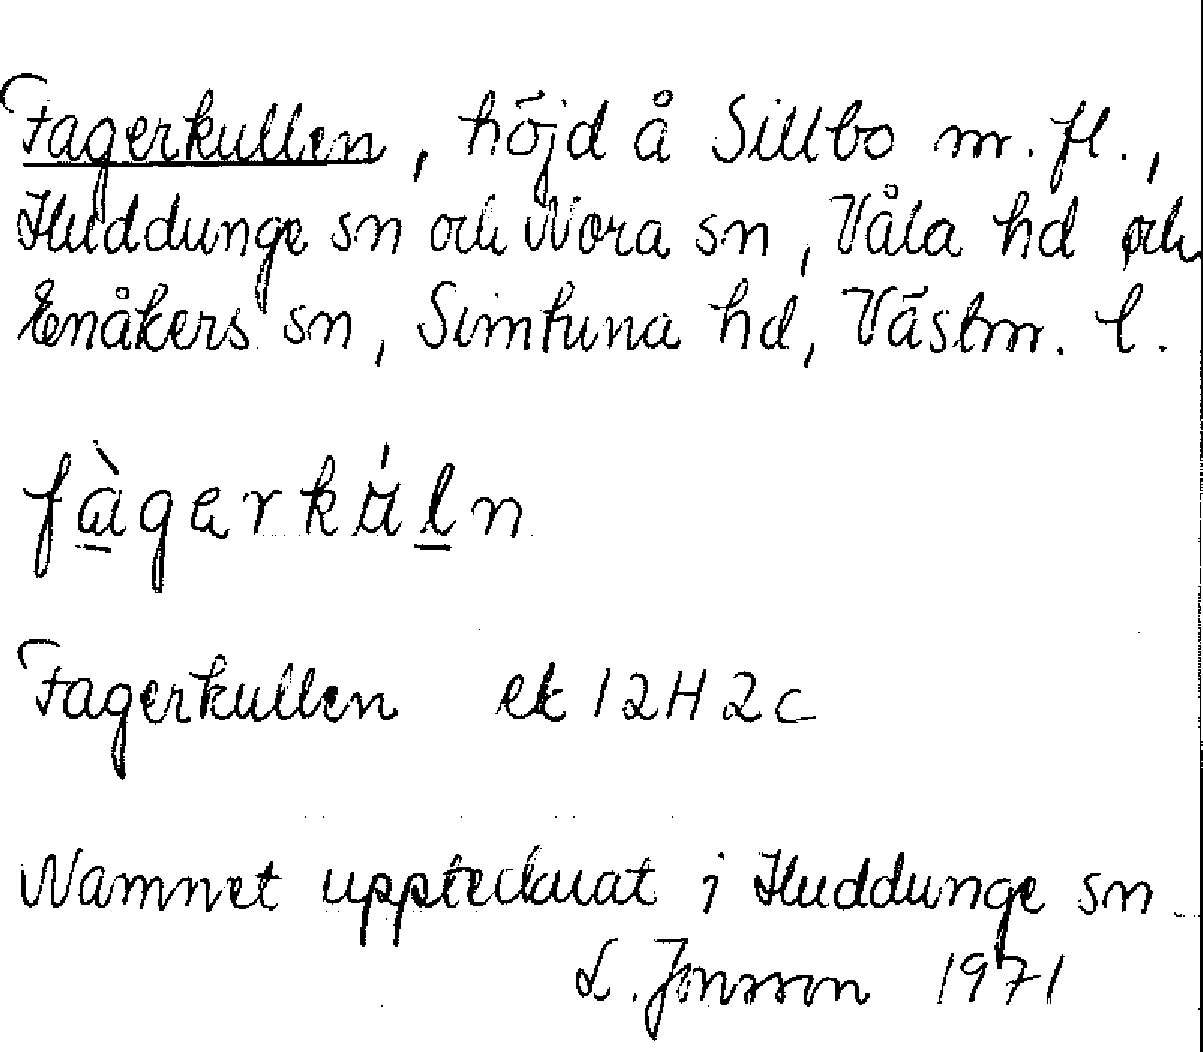 Fagerkullen, höjd å Sillbo m. fl.,
Huddunge sn och Nora sn, Våla hd och
Enåkers sn, Simtuna hd, Västm. l.
fàgerkúln
Fagerkullen ek 12H2c
Namnet upptecknat i Huddunge sn
L. Jonsson 1971